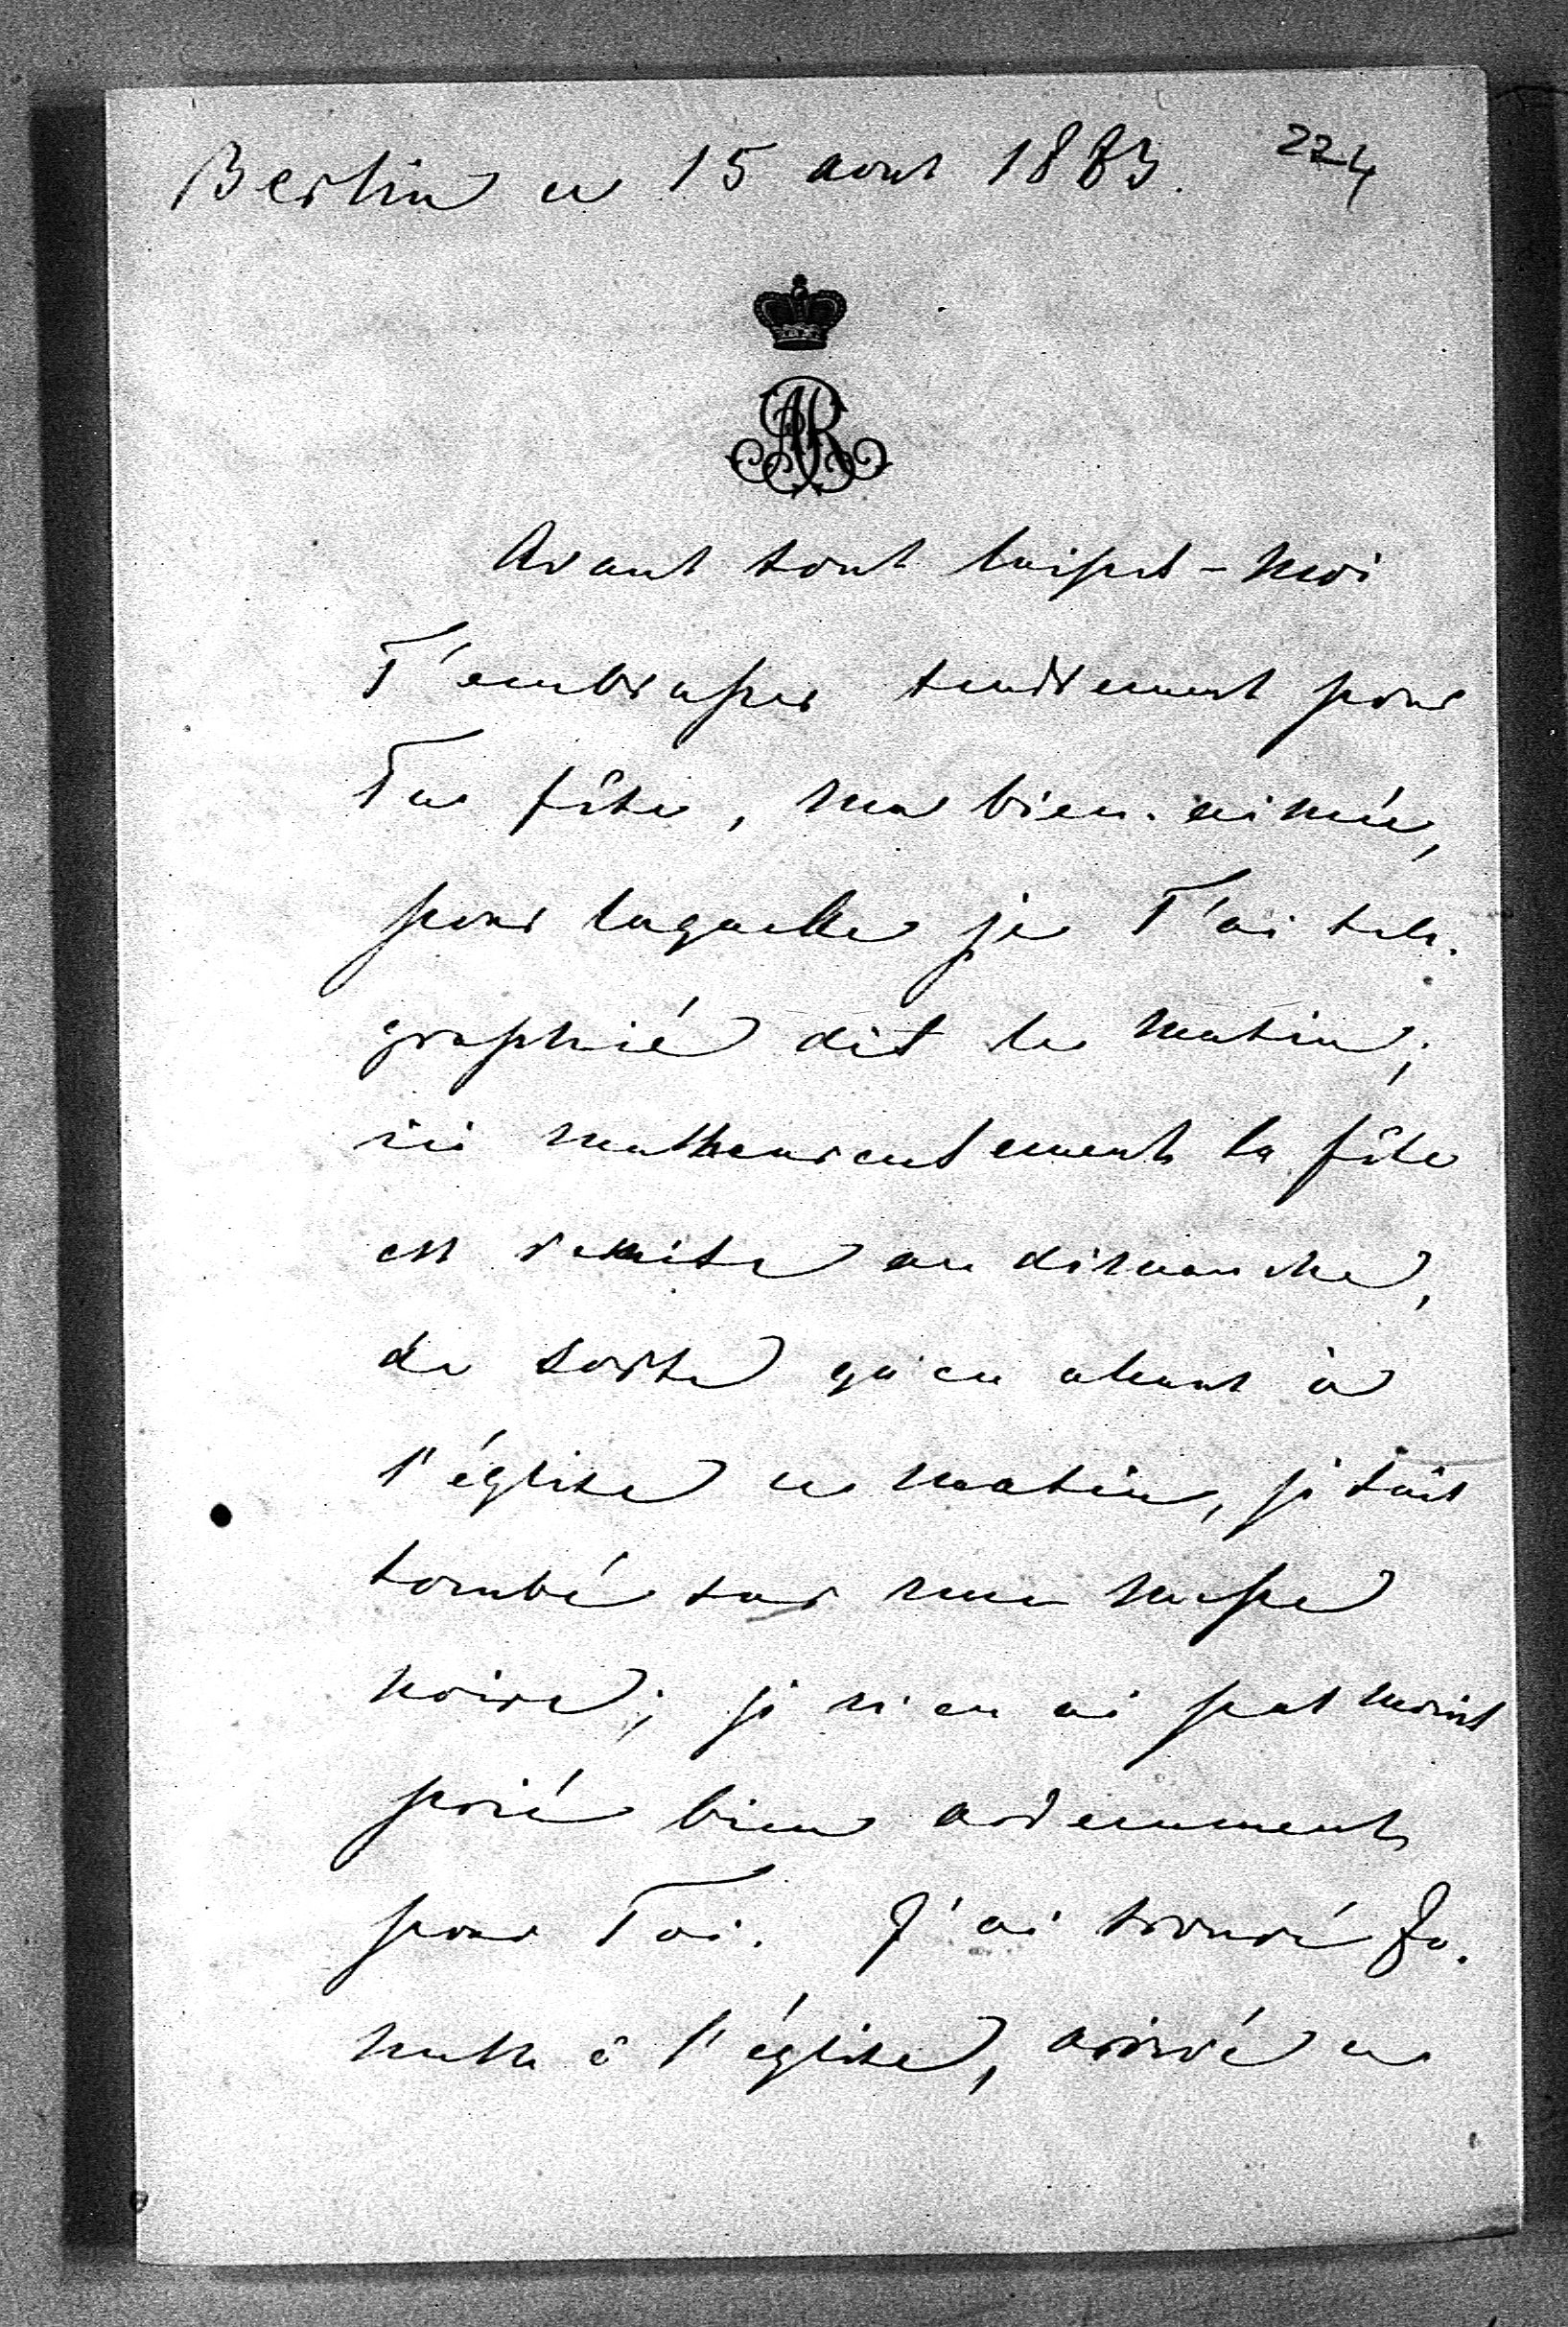 Berlin ce 15 aout 1883. 224
AR
Avant tout laisses-moi
T'embrasser tendrement pour
Ta fête, ma bien-aimée,
pour laquelle je T'ai tele-
graphié dès le matin;
ici malheureusement la fête
est remise au dimanche,
de sorte qu'en allant à
l'église ce matin, je suis
tombé sur une messe
noire; je n'en ai pas moins
prié bien ardemment
pour Toi. J'ai trouvé
à l'église, arrivé ce